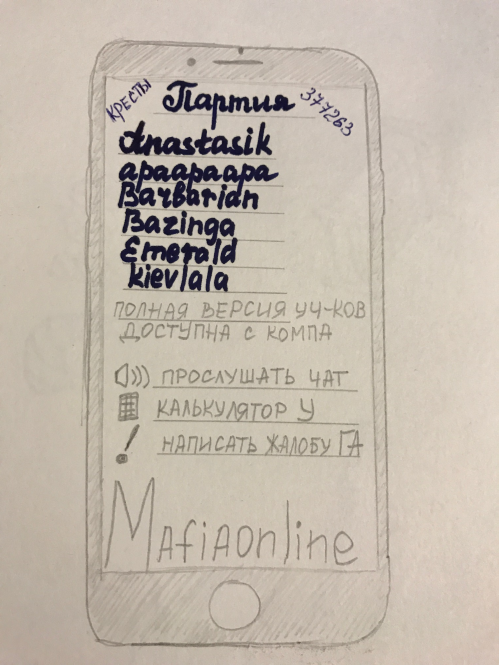 КРЕСТЫ Партия 377263
Anastasik
apaapaapa
Barbarian
Bazinga
Emerald
kievlala
ПОЛНАЯ ВЕРСИЯ УЧ-КОВ
ДОСТУПНА С КОМПА
ПРОСЛУШАТЬ ЧАТ
КАЛЬКУЛЯТОР У
! НАПИСАТЬ ЖАЛОБУ ГА
MAfiAonline